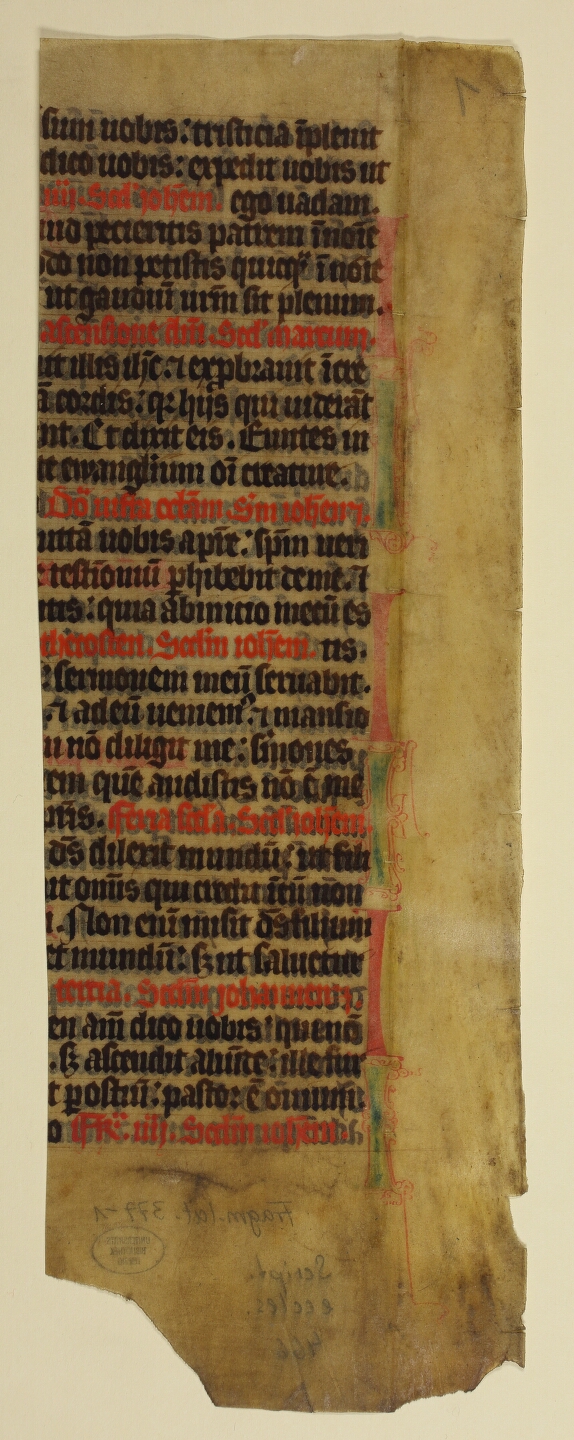 sum uobis : tristicia īpleuit
dico uobis : expedit uobis ut
iiij. Scd' iohēm. ego uadam.
petieritis patrem ī noīe
non petistis quicq̄ ī noīe
ut gaudiū ur̄m sit plenum.
ascensione dn̄i. Scd' marcum.
illis ih̄c. ⁊ exp̄brauit īcre
cordis : qr hijs qui uiderāt
nt. Et dixit eis. Euntes in
ewanglium oī creature.
Dō infra octām. Sm̄ iohem.
mittā uobis a pr̄e : sp̄m ueri
testīoniū phibebit de me. ⁊
tis : quia ab inicio mecū es
thecosten. Scdm̄ iohem. tis.
sermonem meū seruabit.
⁊ ad eū ueniemꝰ. ⁊ mansio
nō diligit me : sm̄ones
em quē audistis nō ē me
feria scd'a. Scd' iohem.
ds̄ dilexit mundū : ut fili
ut omīs qui credit ī eū non
Non enī misit ds̄ filium
mundū : sꝫ ut saluetur
tercia. Scdm̄ johannem
en am̄ dico uobis : qui nō
. sꝫ ascendit aliūde : ille fur
t ꝑ ostiū : pastor ē ouium
o ffr̄. iiij. Scdm̄ iohem.
Fragm. lat. 377-1
Script.
eccles.
466
1